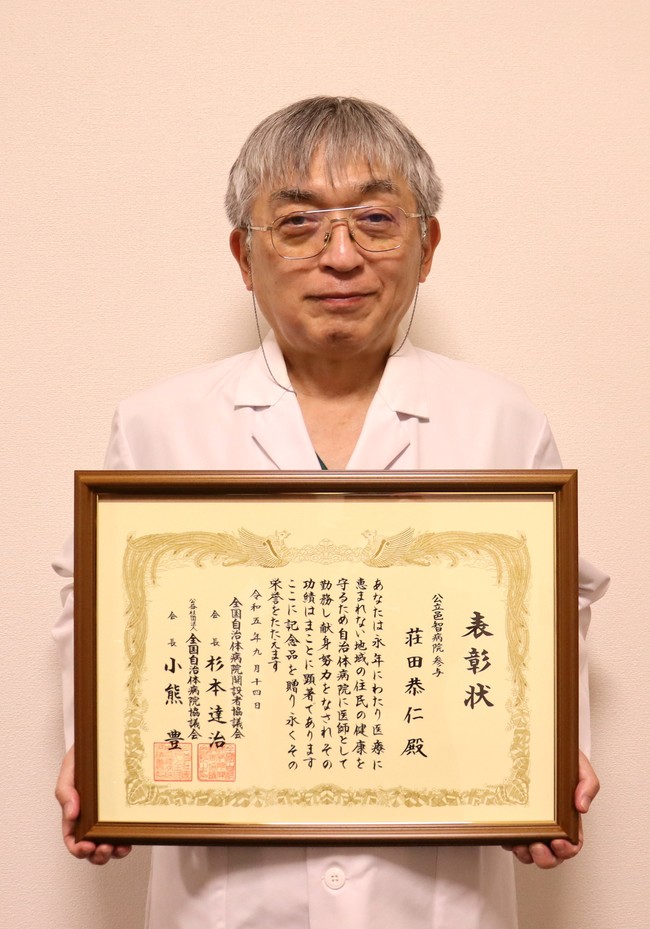 表彰状
公立邑智病院 参与
荘田恭仁 殿
あなたは永年にわたり医療に
恵まれない地域の住民の健康を
守るため自治体病院に医師として
勤務し献身努力をなされその
功績はまことに顕著であります
ここに記念品を贈り永くその
栄誉をたたえます
令和五年九月十四日
全国自治体病院開設者協議会
会長 杉本達治
公益社団法人 全国自治体病院協議会
会長 小熊 豊